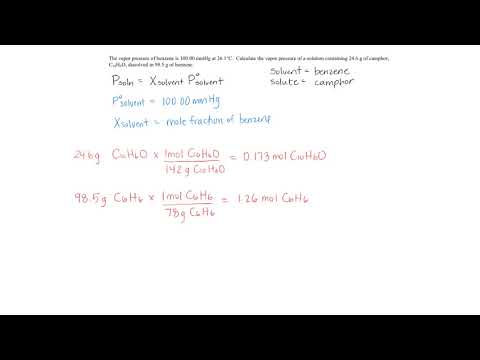 The vapor pressure of benzene is 100.00 mmHg at 26.1°C. Calculate the vapor pressure of a solution containing 24.6 g of camphor,
C₁₀H₆O, dissolved in 98.5 g of benzene.
Psoln = Xsolvent P°solvent
solvent = benzene
solute = camphor
P°solvent = 100.00 mmHg
Xsolvent = mole fraction of benzene
24.6g C₁₀H₆O × 1mol C₁₀H₆O / 142g C₁₀H₆O = 0.173 mol C₁₀H₆O
98.5g C₆H₆ × 1mol C₆H₆ / 78g C₆H₆ = 1.26 mol C₆H₆